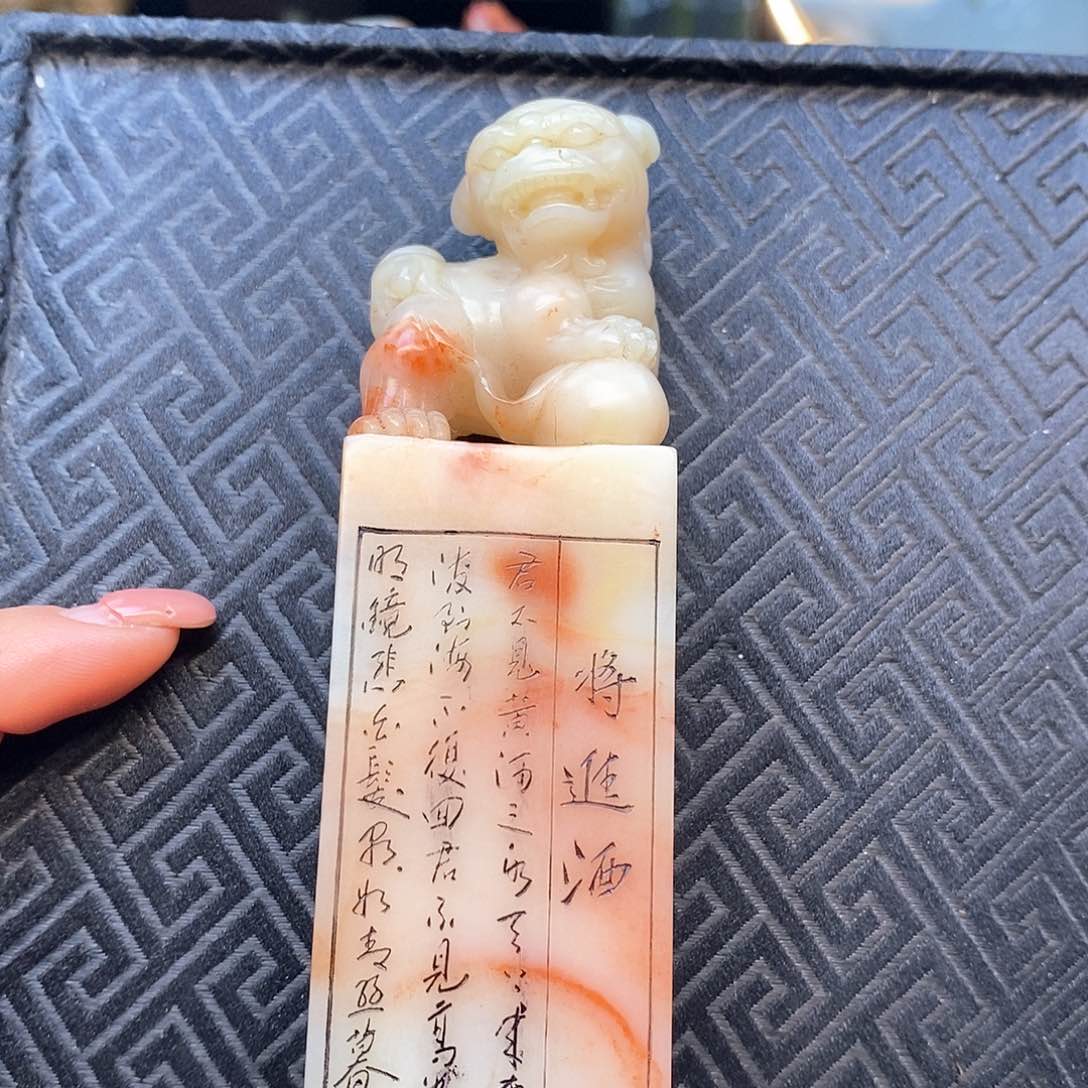 將進酒
君不見黃河之水天上來奔
流到海不復回君不見高堂
明鏡悲白髮朝如青絲暮